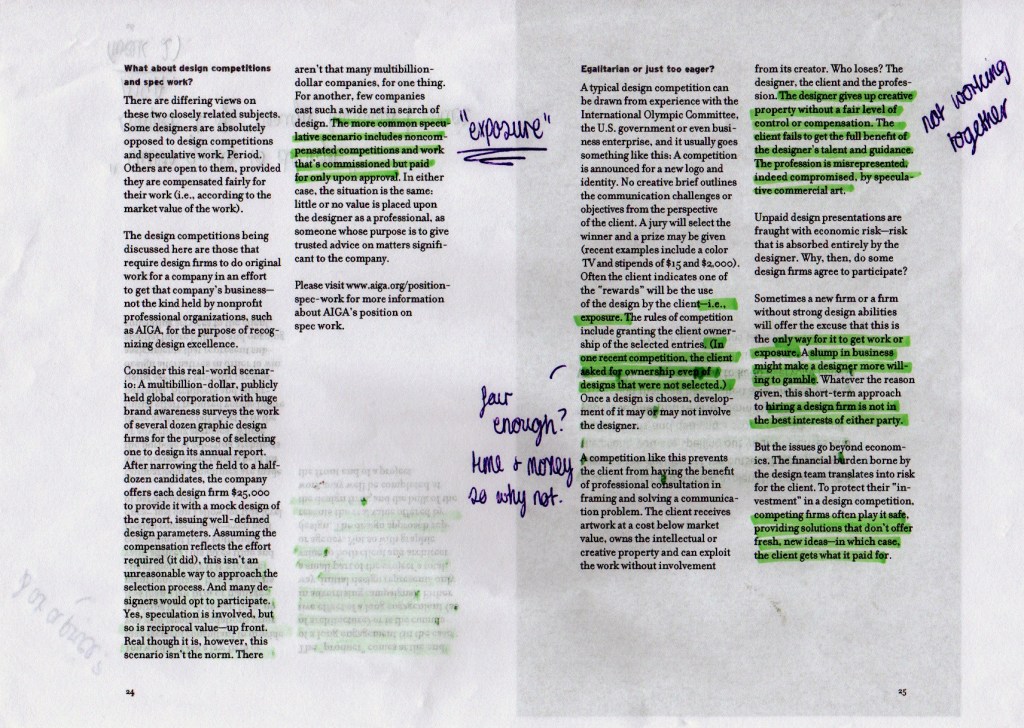 What about design competitions
and spec work?
There are differing views on
these two closely related subjects.
Some designers are absolutely
opposed to design competitions
and speculative work. Period.
Others are open to them, provided
they are compensated fairly for
their work (i.e., according to the
market value of the work).
The design competitions being
discussed here are those that
require design firms to do original
work for a company in an effort
to get that company's business—
not the kind held by nonprofit
professional organizations, such
as AIGA, for the purpose of recog-
nizing design excellence.
Consider this real-world scenar-
io: A multibillion-dollar, publicly
held global corporation with huge
brand awareness surveys the work
of several dozen graphic design
firms for the purpose of selecting
one to design its annual report.
After narrowing the field to a half-
dozen candidates, the company
offers each design firm $25,000
to provide it with a mock design of
the report, issuing well-defined
design parameters. Assuming the
compensation reflects the effort
required (it did), this isn't an
unreasonable way to approach the
selection process. And many de-
signers would opt to participate.
Yes, speculation is involved, but
so is reciprocal value—up front.
Real though it is, however, this
scenario isn't the norm. There
24
aren't that many multibillion-
dollar companies, for one thing.
For another, few companies
cast such a wide net in search of
design. The more common specu-
lative scenario includes noncom-
pensated competitions and work
that's commissioned but paid
for only upon approval. In either
case, the situation is the same:
little or no value is placed upon
the designer as a professional, as
someone whose purpose is to give
trusted advice on matters signifi-
cant to the company.
Please visit www.aiga.org/position-
spec-work for more information
about AIGA's position on
spec work.
"exposure"
Egalitarian or just too eager?
A typical design competition can
be drawn from experience with the
International Olympic Committee,
the U.S. government or even busi-
ness enterprise, and it usually goes
something like this: A competition
is announced for a new logo and
identity. No creative brief outlines
the communication challenges or
objectives from the perspective
of the client. A jury will select the
winner and a prize may be given
(recent examples include a color
TV and stipends of $15 and $2,000).
Often the client indicates one of
the "rewards" will be the use
of the design by the client—i.e.,
exposure. The rules of competition
include granting the client owner-
ship of the selected entries. (In
one recent competition, the client
asked for ownership even of
designs that were not selected.)
Once a design is chosen, develop-
ment of it may or may not involve
the designer.
fair
enough?
time + money
so why not.
A competition like this prevents
the client from having the benefit
of professional consultation in
framing and solving a communica-
tion problem. The client receives
artwork at a cost below market
value, owns the intellectual or
creative property and can exploit
the work without involvement
from its creator. Who loses? The
designer, the client and the profes-
sion. The designer gives up creative
property without a fair level of
control or compensation. The
client fails to get the full benefit of
the designer's talent and guidance.
The profession is misrepresented,
indeed compromised, by specula-
tive commercial art.
not working
together
Unpaid design presentations are
fraught with economic risk—risk
that is absorbed entirely by the
designer. Why, then, do some
design firms agree to participate?
Sometimes a new firm or a firm
without strong design abilities
will offer the excuse that this is
the only way for it to get work or
exposure. A slump in business
might make a designer more will-
ing to gamble. Whatever the reason
given, this short-term approach
to hiring a design firm is not in
the best interests of either party.
But the issues go beyond econom-
ics. The financial burden borne by
the design team translates into risk
for the client. To protect their "in-
vestment" in a design competition,
competing firms often play it safe,
providing solutions that don't offer
fresh, new ideas—in which case,
the client gets what it paid for.
25